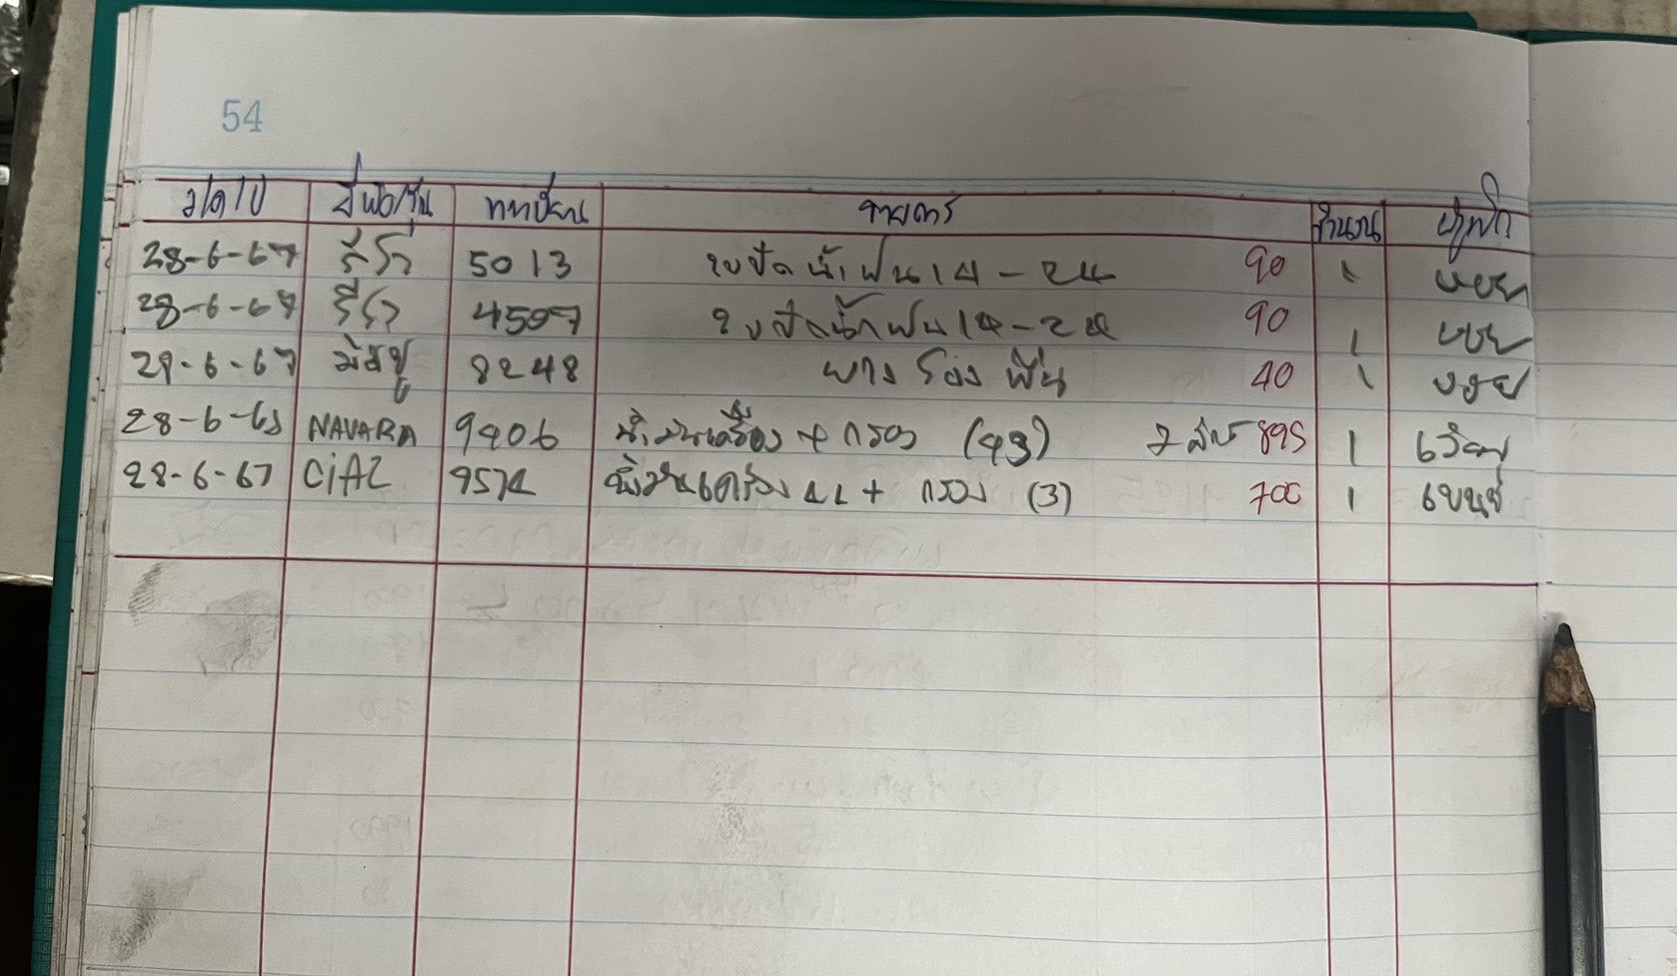 54
ว/ด/ป ยี่ห้อ/รุ่น ทะเบียน รายการ จำนวน ผู้เบิก
28-6-67 รีโว่ 5013 ใบปัดน้ำฝน 14-24 90 1
28-6-67 รีโว่ 4597 ใบปัดน้ำฝน 14-24 90 1
29-6-67 มิตซู 8248 ยางรองพื้น 40 1
28-6- NAVARA 9406 น้ำมันเครื่อง + กรอง 895 1
28-6-67 CiAZ 957 น้ำมันเครื่อง + กรอง (3) 700 1